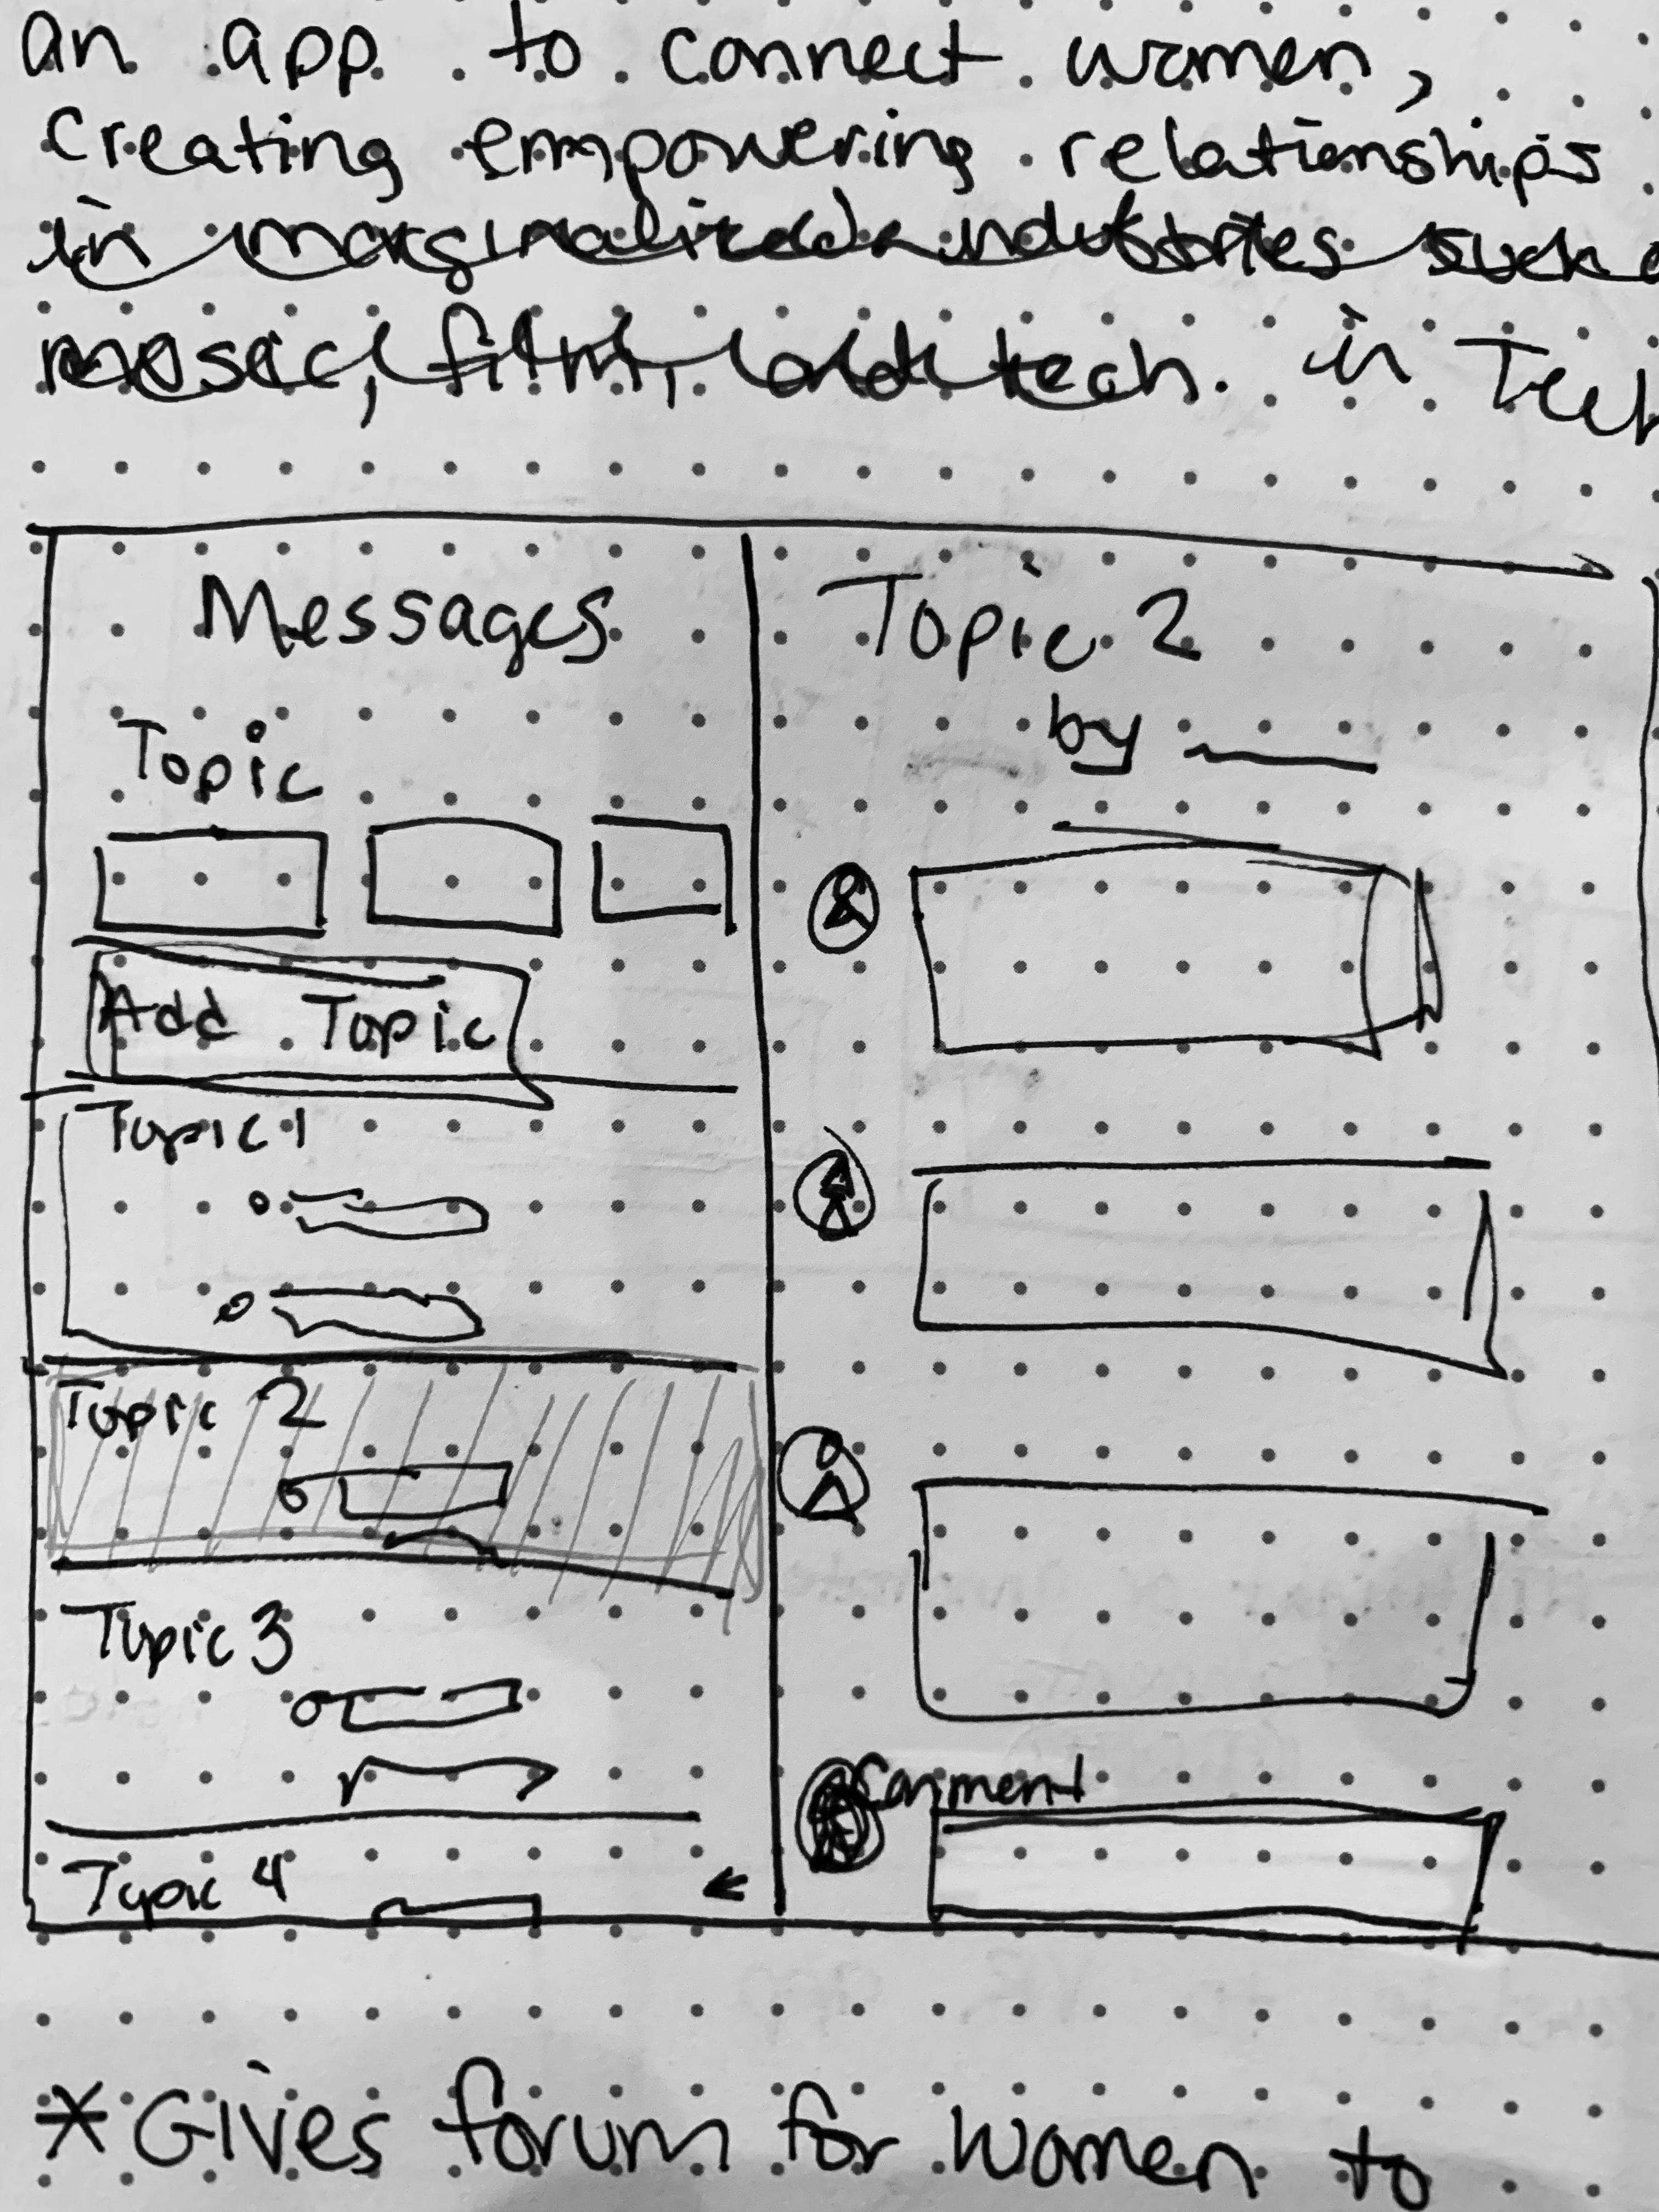 an app to connect women,
creating empowering relationships
in marginalized industries such
music, film, and tech. in Tech
Messages
Topic
Add Topic
Topic 1
Topic 2
Topic 3
Topic 4
Topic 2
by
Comment
*Gives forum for women to